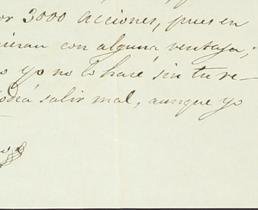 or 3000 acciones, pues en
con alguna ventaja,
yo no lo haré sin tu re-
salir mal, aunque yo